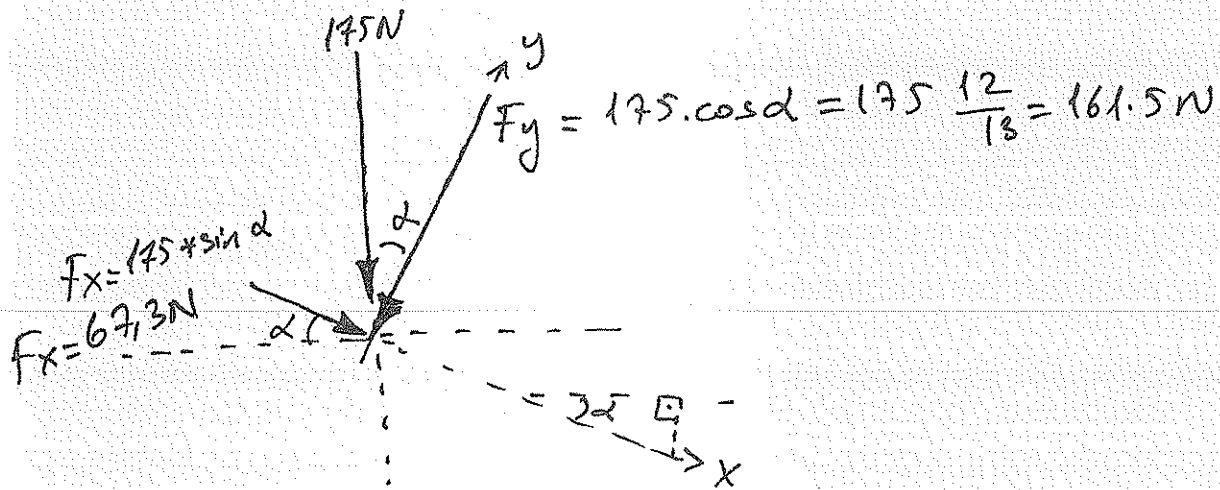 175N
y
Fy = 175.cosα = 175 12/13 = 161.5 N
α
Fx=175*sin α
Fx=67,3N
α
α
x